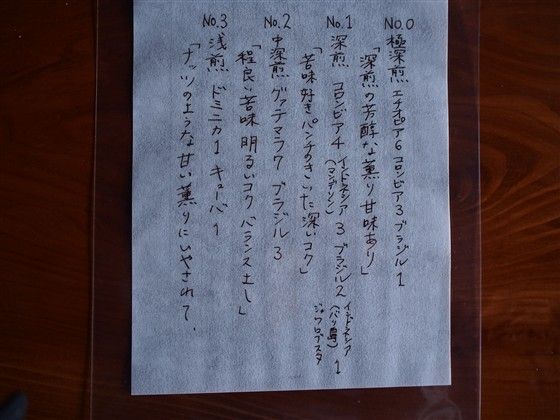 No.0
極深煎 エチオピア6 コロンビア3 ブラジル1
「深煎の芳醇な薫り 甘味あり」
No.1
深煎 コロンビア4 インドネシア(マンデリン)3 ブラジル2 インドネシア(バリ島)ジャワロブスタ1
「苦味好き パンチのきいた深いコク」
No.2
中深煎 グァテマラ7 ブラジル3
「程良い苦味 明るいコク バランス土し」
No.3
浅煎 ドミニカ1 キューバ1
「ナッツのような甘い薫りにいやされて、